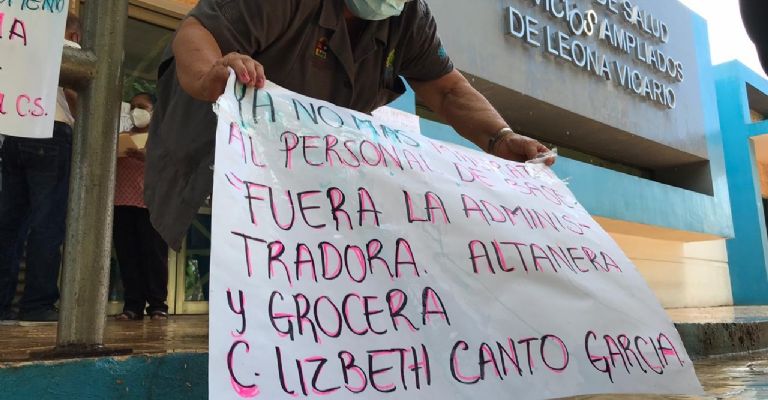 DE SALUD
VICIOS AMPLIADOS
DE LEONA VICARIO
C.S.
YA NO MAS
AL PERSONAL DE BASE
"FUERA LA ADMINIS-
TRADORA. ALTANERA
Y GROCERA
C. LIZBETH CANTO GARCIA.